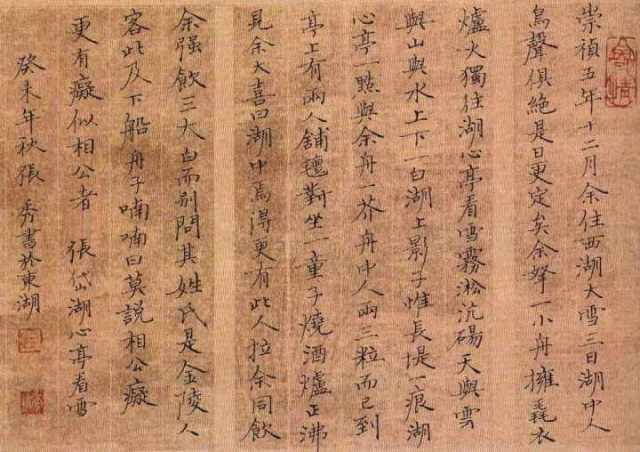 崇禎五年十二月余住西湖大雪三日湖中人
鳥聲俱絕是日更定矣余拏一小舟擁毳衣
爐火獨往湖心亭看雪霧淞沆碭天與雲
與山與水上下一白湖上影子惟長堤一痕湖
心亭一點與余舟一芥舟中人兩三粒而已到
亭上有兩人鋪氈對坐一童子燒酒爐正沸
見余大喜曰湖中焉得更有此人拉余同飲
余強飲三大白而別問其姓氏是金陵人
客此及下船舟子喃喃曰莫說相公癡
更有癡似相公者 張岱湖心亭看雪
癸未年秋張秀書於東湖